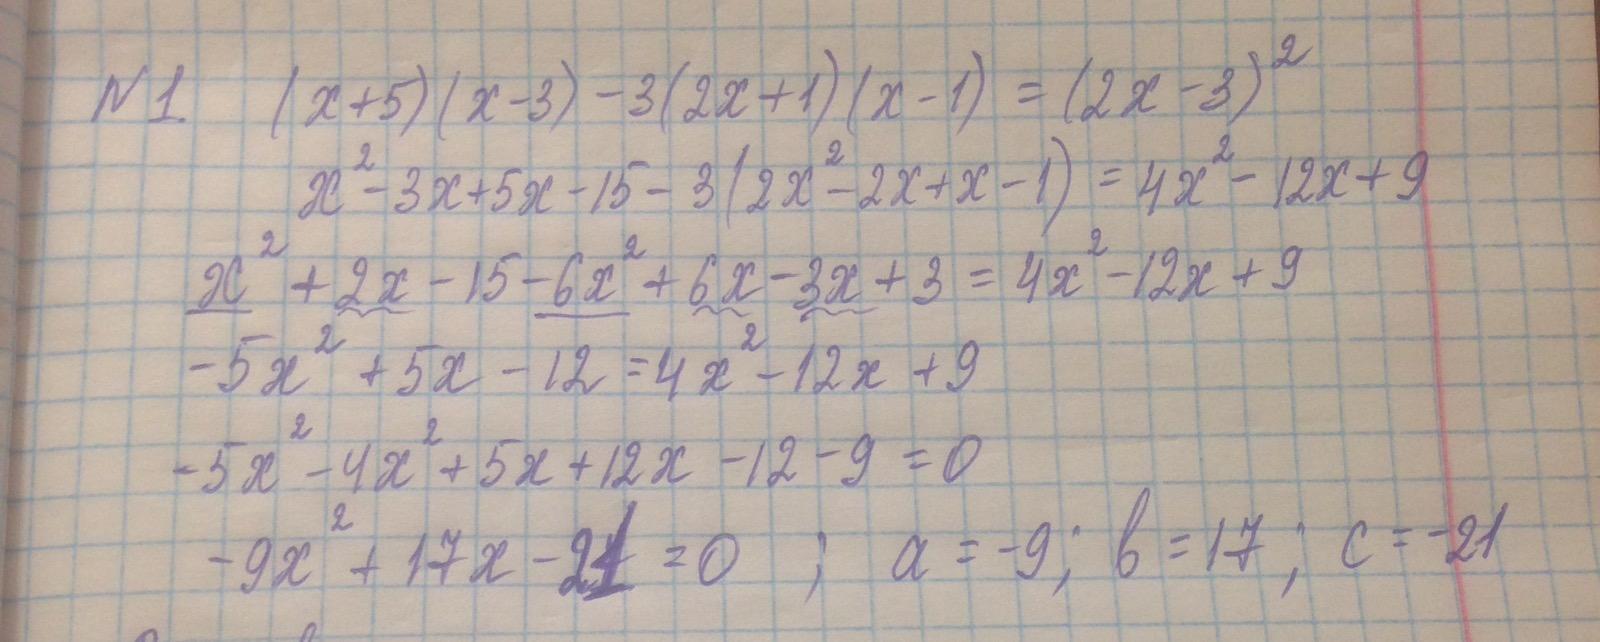 N 1. (x+5)(x-3)-3(2x+1)(x-1)=(2x-3)²
x²-3x+5x-15-3(2x²-2x+x-1)=4x²-12x+9
x²+2x-15-6x²+6x-3x+3=4x²-12x+9
-5x²+5x-12=4x²-12x+9
-5x²-4x²+5x+12x-12-9=0
-9x²+17x-21=0 ; a=-9; b=17; c=-21